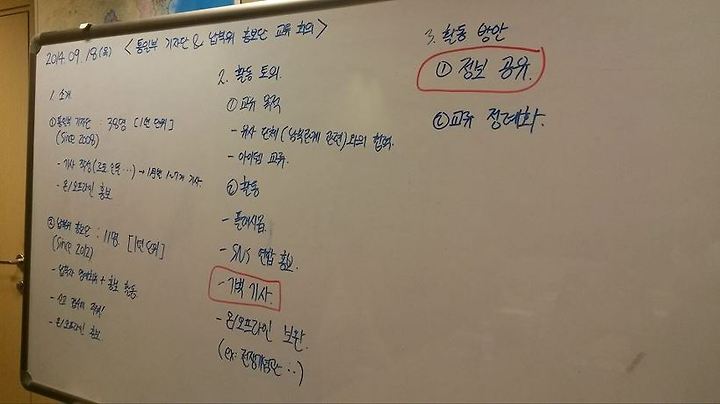 2014.09.18(목) <통일부 기자단 & 납북위 홍보단 교류 회의>
1. 소개
① 통일부 기자단 : 38명 [1년 단위]
(Since 2008)
- 기사 작성 → 기사
- 온/오프라인 홍보
② 납북위 홍보단 : 11명. [1년 단위]
(Since 2012)
- 납북자 명예회복 + 홍보 활동
- 신고 접수
- 온/오프라인 홍보.
2. 활동 토의.
① 교류 목적
- 유사 단체(남북관계 관련)와의 협력.
- 아이템 교류.
② 활동
- 플래시몹.
- SNS 연합 홍보.
- 기획 기사.
- 온/오프라인 보완.
(ex: 전쟁기념관...)
3. 활동 방안
① 정보 공유.
② 교류 정례화.